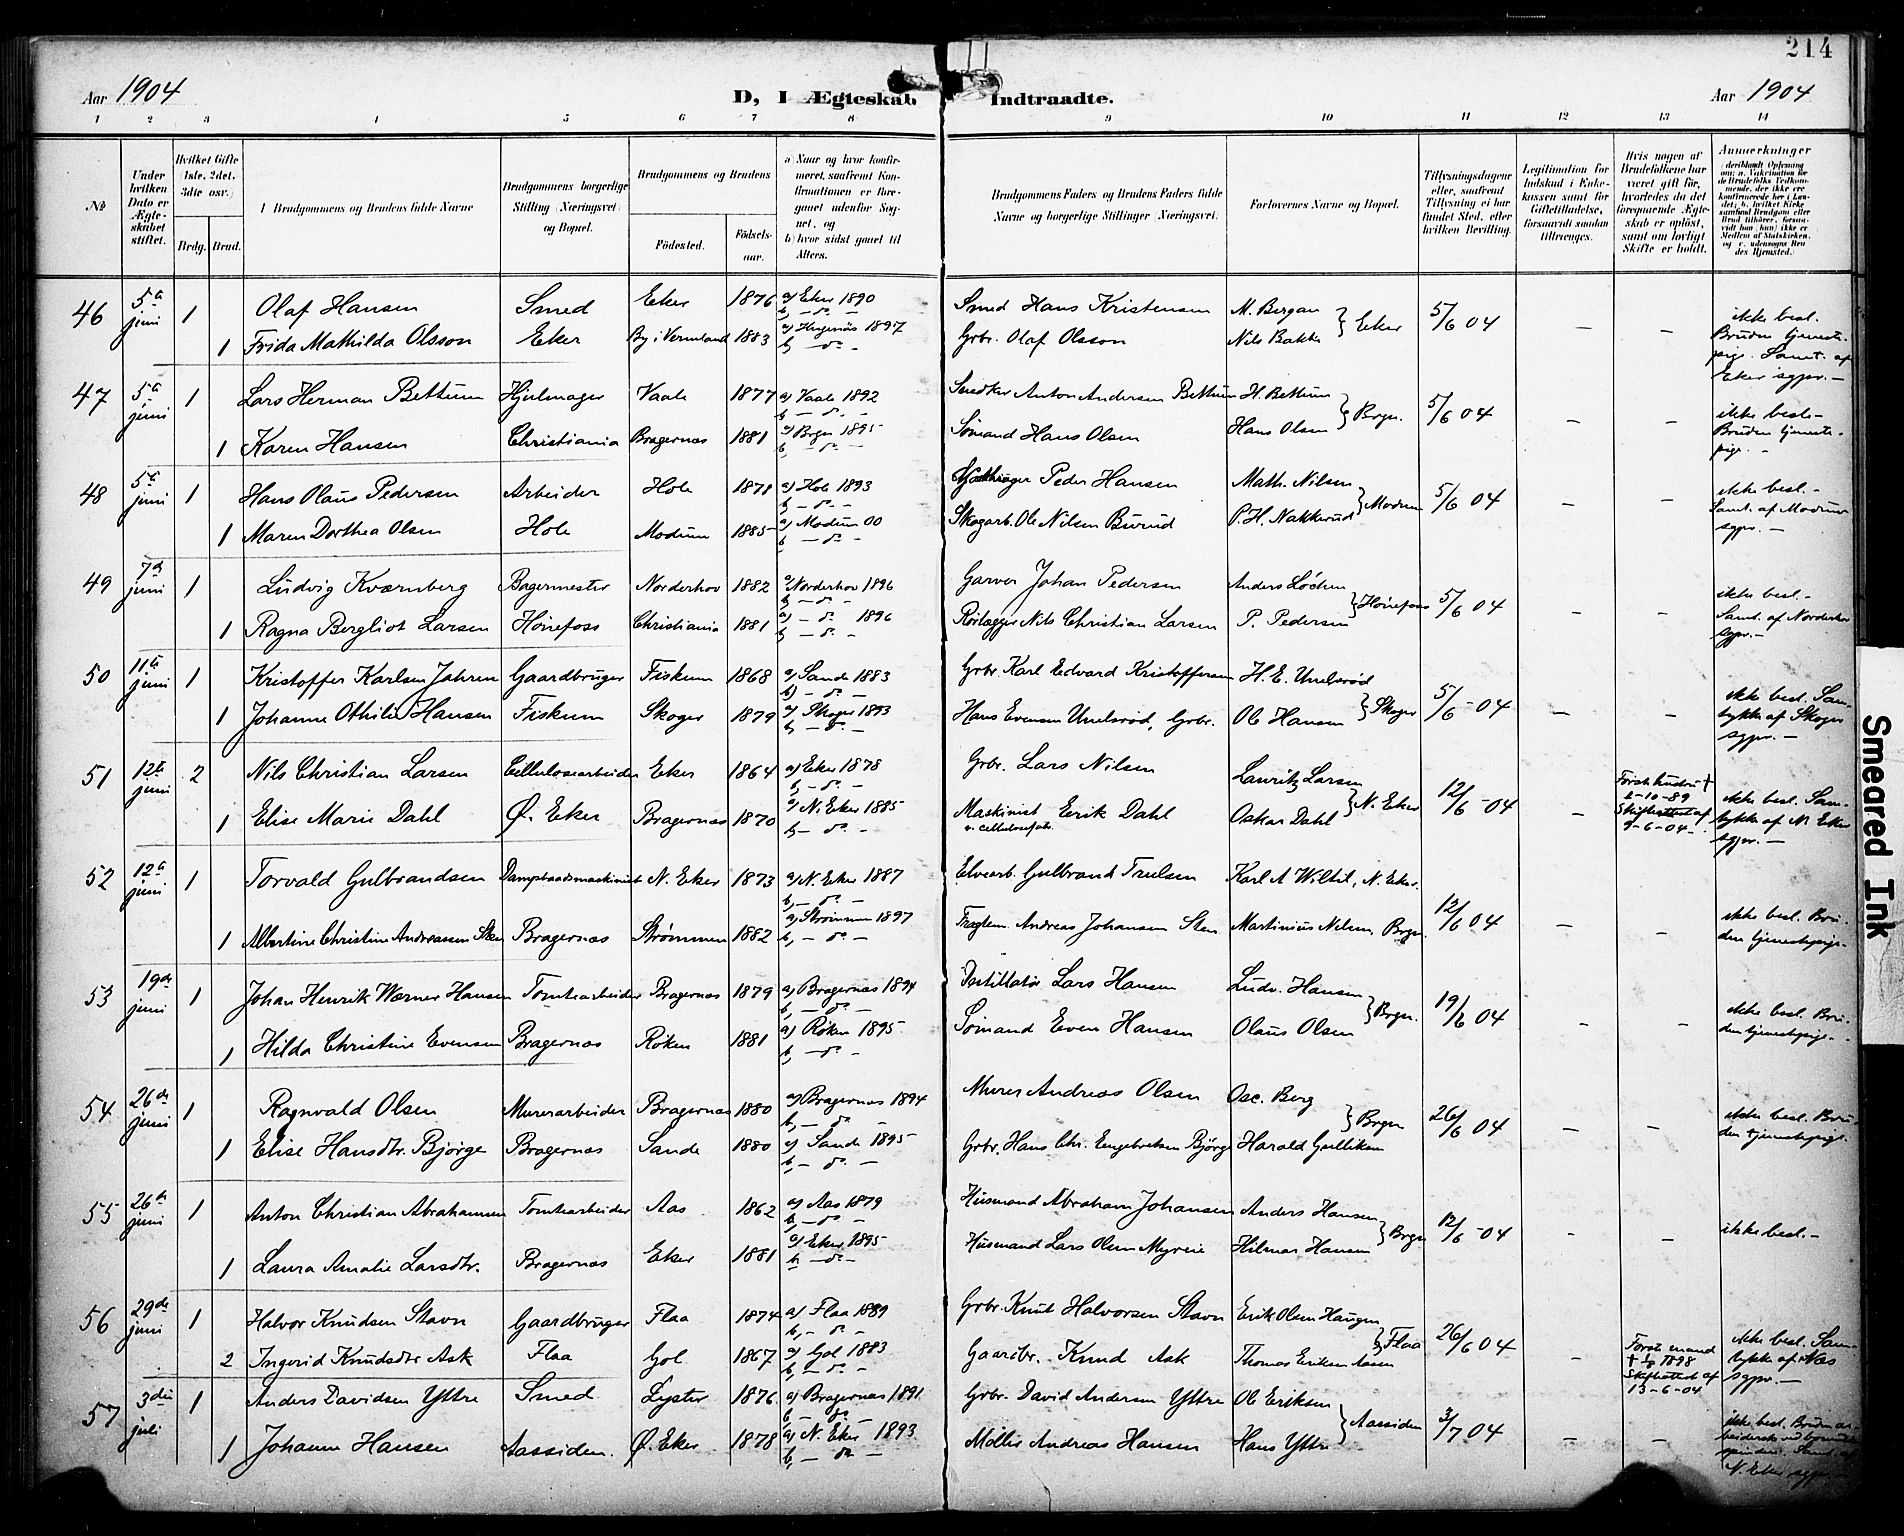 214
Aar 1904
D, I Ægteskab Indtraadte.
Aar 1904
1 2 3 4 5 6 7 8 9 10 11 12 13 14
No
Under hvilken Dato er Ægteskabet stiftet.
Hvilket Gifte (1ste, 2det, 3die osv.)
Brdg. Brud.
Brudgommens og Brudens fulde Navne
Brudgommens borgerlige Stilling (Næringsvei) og Bopæl.
Brudgommens og Brudens
Födested. Födsels-aar.
a) Naar og hvor konfirmeret, saafremt Konfirmationen er foregaaet udenfor Sognet, og b) hvor sidst gaaet til Alters.
Brudgommens Faders og Brudens Faders fulde Navne og borgerlige Stillinger (Næringsvei.
Forlovernes Navne og Bopæl.
Tillysningsdagene eller, saafremt Tillysning ei har fundet Sted, efter hvilken Bevilling.
Legitimation for Indskud i Enkekassen samt for Giftetilladelse, forsaavidt saadan tiltrænges.
Hvis nogen af Brudefolkene har været gift før, hvorledes da det foregaaende Ægteskab er opløst, samt om lovligt Skifte er holdt.
Anmærkninger
46 5te juni 1 Olaf Hansen Smed Eker 1876 a) Eker 1890 b, — do. — Smed Hans Kristensen M. Bergan } Eker 5/6 04 — — ikke besl. Bruden tjeneste-pige. Samt. af Eker sgpr. —
1 Frida Mathilda Olsson Eker By i Vermland 1883 1897 b, — do — Grbr. Olaf Olsson Nils Bakke
47 5te juni 1 Lars Herman Bettum Hjulmager Vaale 1877 a) Vaale 1892 b — do. — Snedker Anton Andersen Bettum H. Bettum } Brgn. 5/6 04 — — ikke besl- Bruden tjeneste-pige. -
1 Karen Hansen Christiania Bragernæs 1881 a) Brgn 1895 b, — do — Sømand Hans Olsen Hans Olsen
48 5te juni 1 Hans Olaus Pedersen Arbeider Hole 1878 a) Hole 1893 b — do. — Peder Hansen Math. Nilsen } Modum 5/6 04 — — ikke besl. - Samt. af Modum sgpr. —
1 Maren Dorthea Olsen Hole Modum 1885 a) Modum 00 b — do. — Skogarb. Ole Nilsen Burud P. H. Nakkerud
49 7de juni 1 Ludvig Kværnberg Bagermester Norderhov 1882 a) Norderhov 1896 b, — do — Garver Johan Pedersen Anders Löchen } Hönefoss 5/6 04 — — ikke besl. - Samt. af Norderhov sgpr. —
1 Ragna Bergliot Larsen Hönefoss Christiania 1881 a) — do. 1896 b — do. — Rörlægger Nils Christian Larsen P. Pedersen
50 11te juni 1 Kristoffer Karlsen Jahren Gaardbruger Fiskum 1868 a) Sande 1883 b) — do. — Grbr. Karl Edvard Kristoffersen H. E. Unelsrød } Skoger 5/6 - 04 — — ikke besl. Sam-tykke af Skoger sgpr. —
1 Johanne Othilie Hansen Fiskum Skoger 1879 a) Skoger 1893 b, — do. — Hans Evensen Unelsrød, Grbr. Ole Hansen
51 12te juni 2 Nils Christian Larsen Cellulosearbeider Eker 1864 a) Eker 1878 b, — do. — Grbr. Lars Nilsen Lauritz Larsen } N. Eker 12/6 - 04 — Første hustru † 2-10-89 Skifteattest af 9-6-04 - ikke besl. Sam-tykke af N. Eker sgpr. —
1 Elise Marie Dahl Ø. Eker Bragernæs 1870 a) N. Eker 1885 b, — do. — Maskinist Erik Dahl v. cellulosefab. Oskar Dahl
52 12te juni 1 Torvald Gulbrandsen Dampbaadsmaskinist N. Eker 1873 a) N. Eker 1887 b, — do. — Elvearb. Gulbrand Trulsen Karl A , N. Eker. 12/6 04 — — ikke besl. Bru-den tjenestepige.-
1 Albertine Christine Andreassen Sten Bragernæs Strømmen 1882 a) Strømmen 1897 b, — do — Andreas Johansen Sten Martinius Nilsen, Brgn
53 19de juni 1 Johan Henrik Werner Hansen Tomtearbeider Bragernæs 1879 a) Bragernæs 1894 b, — do. — Destillatør Lars Hansen Ludv. Hansen } Brgn. 19/6 04 — — ikke besl. Bru-den tjenestepige. -
1 Hilda Christine Evensen Bragernæs Røken 1881 a) Røken 1895 b, — do — Sømand Even Hansen Olaus Olsen
54 26de juni 1 Ragnvald Olsen Murerarbeider Bragernæs 1880 a) Bragernæs 1894 b, — do — Murer Andreas Olsen Osc. Berg } Brgn 26/6 04 — — ikke besl. Bru-den tjenestepige.
1 Elise Hansdtr. Bjørge Bragernæs Sande 1880 a) Sande 1895 b, — do. — Grbr. Hans Chr. Engebretsen Bjørge Harald Gulliksen
55 26de juni 1 Anton Christian Abrahamsen Tomtearbeider Aas 1862 a) Aas 1879 b, — do — Husmand Abraham Johansen Anders Hansen } Brgn 12/6 - 04 — — ikke besl. -
1 Laura Amalie Larsdtr. Bragernæs Eker 1881 a) Eker 1895 b — do — Husmand Lars Olsen Myreie Hilmar Hansen
56 29de juni 1 Halvor Knudsen Stavn Gaardbruger Flaa 1874 a) Flaa 1889 b, — do — Grbr. Knut Halvorsen Stavn Erik Olsen Haugen } Flaa 26/6 04 — Første mand † 1898 Skifteattest af 13-6-04 ikke besl. Sam-tykke af Næs sgpr. —
2 Ingerid Knudsdtr Ask Flaa Gol 1867 a) Gol 1883 b, — do — Gaardbr. Knud Ask Thomas Eriksen Aasen
57 3die juli 1 Anders Davidsen Yttre Smed Lyster 1876 a) Bragernæs 1891 b — do — Grbr. David Andersen Yttre Ole Eriksen } Aassiden 3/7 04 — — ikke besl. Bruden ar-beiderske N. Eker sgpr. —
1 Johanne Hansen Aassiden. Ø. Eker 1878 a) N. Eker 1893 b, — do — Møller Andreas Hansen Hans Yttre
Smeared Ink